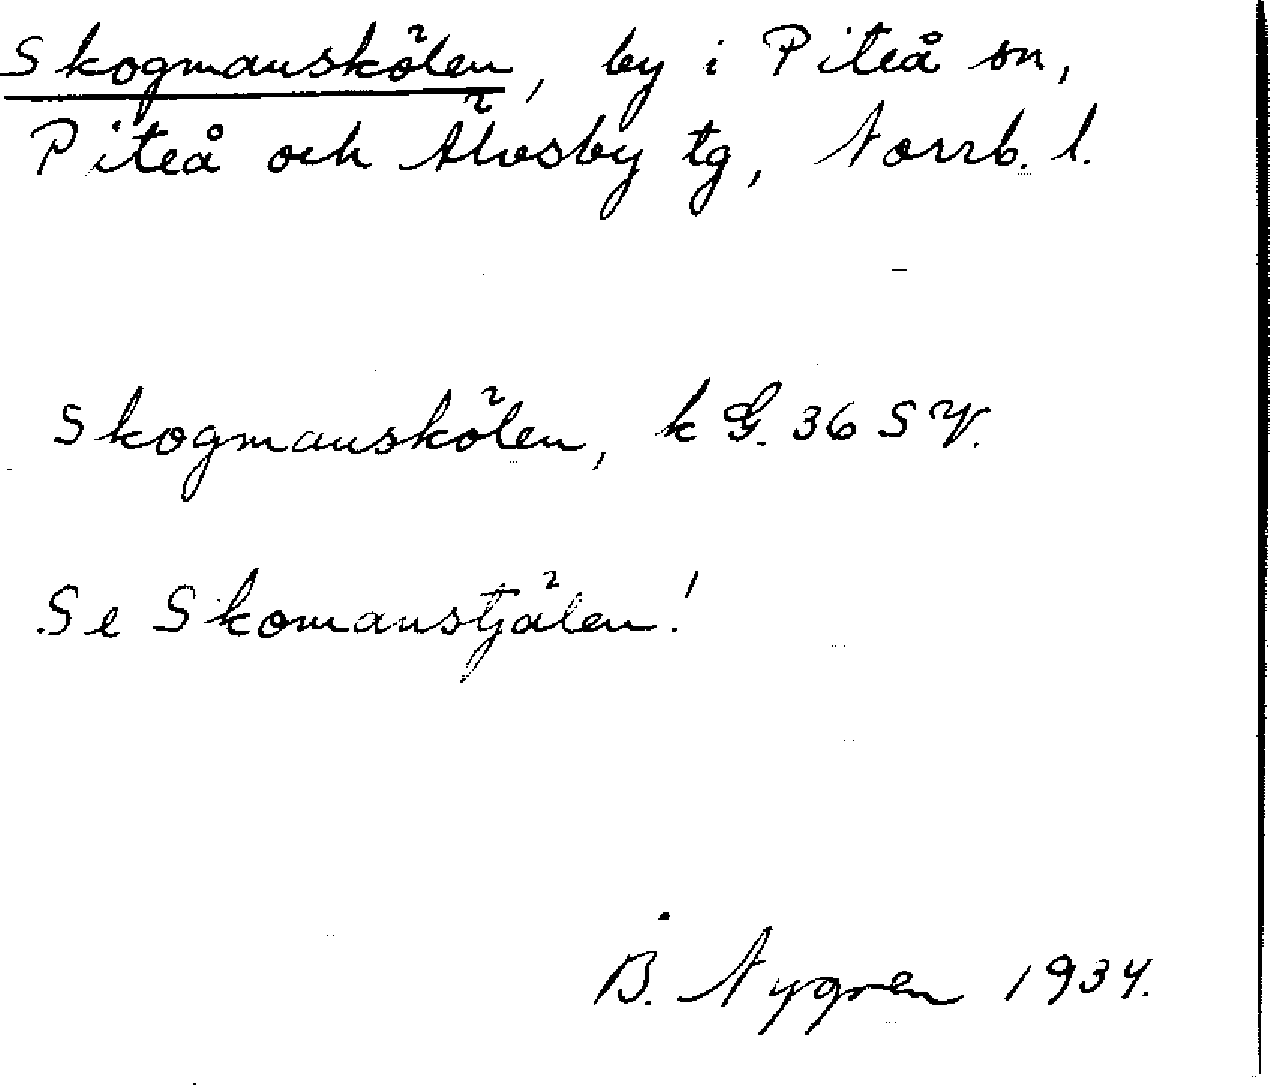 Skogmanskölen, by i Piteå sn,
Piteå och Älvsby tg, Norrb. l.
Skogmanskölen, k G. 36 SV.
Se Skomanstjälen!
B. Nygren 1934.